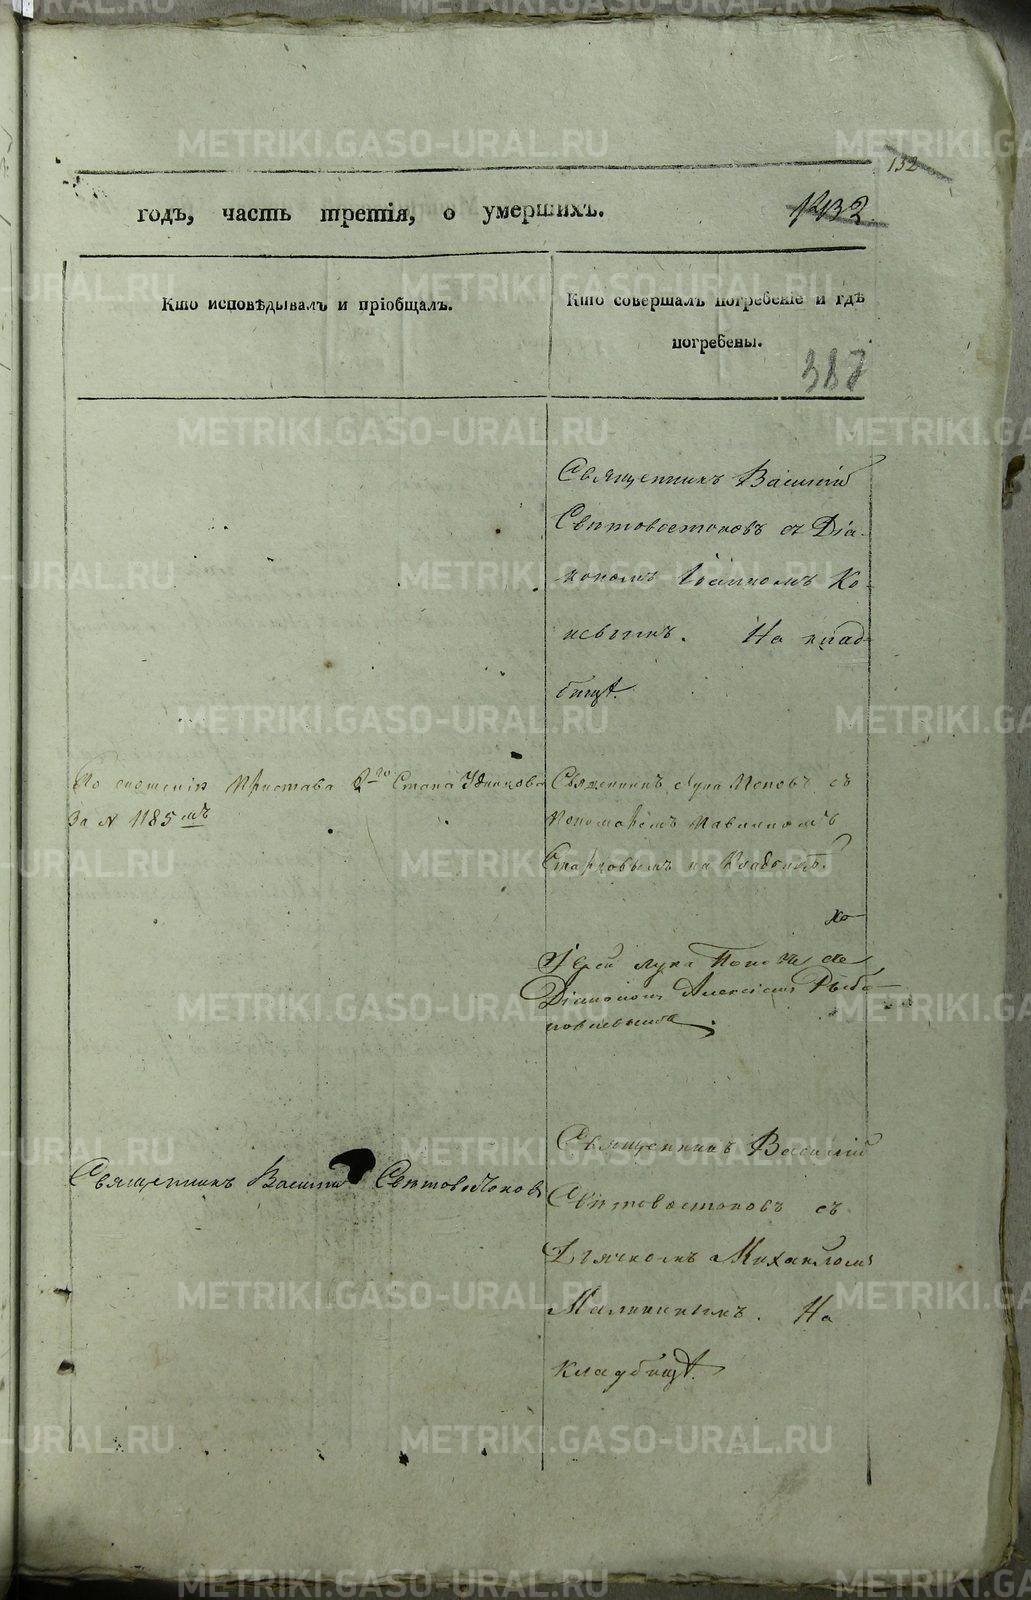 132
годъ, часть третія, о умершихъ.
132
Кто исповѣдывалъ и пріобщалъ.
Кто совершалъ погребеніе и гдѣ
погребены.
387
Священникъ Василій
Свѣтовостоковъ съ Діа-
кономъ Іоанномъ Ко-
На клад-
бищѣ.
По сношенію Пристава 2го Стана Удинцова
За № 1185мъ
Священникъ Лука Поповъ съ
Пономаремъ Павлиномъ
Старковымъ на Кладбищѣ.
Іерей Лука Поповъ со
Діакономъ Алексіемъ
Священникъ Василій Свѣтовостоковъ
Священникъ Василій
Свѣтовостоковъ съ
Дьячкомъ Михаиломъ
Малининымъ. На
кладбищѣ.
METRIKI.GASO-URAL.RU